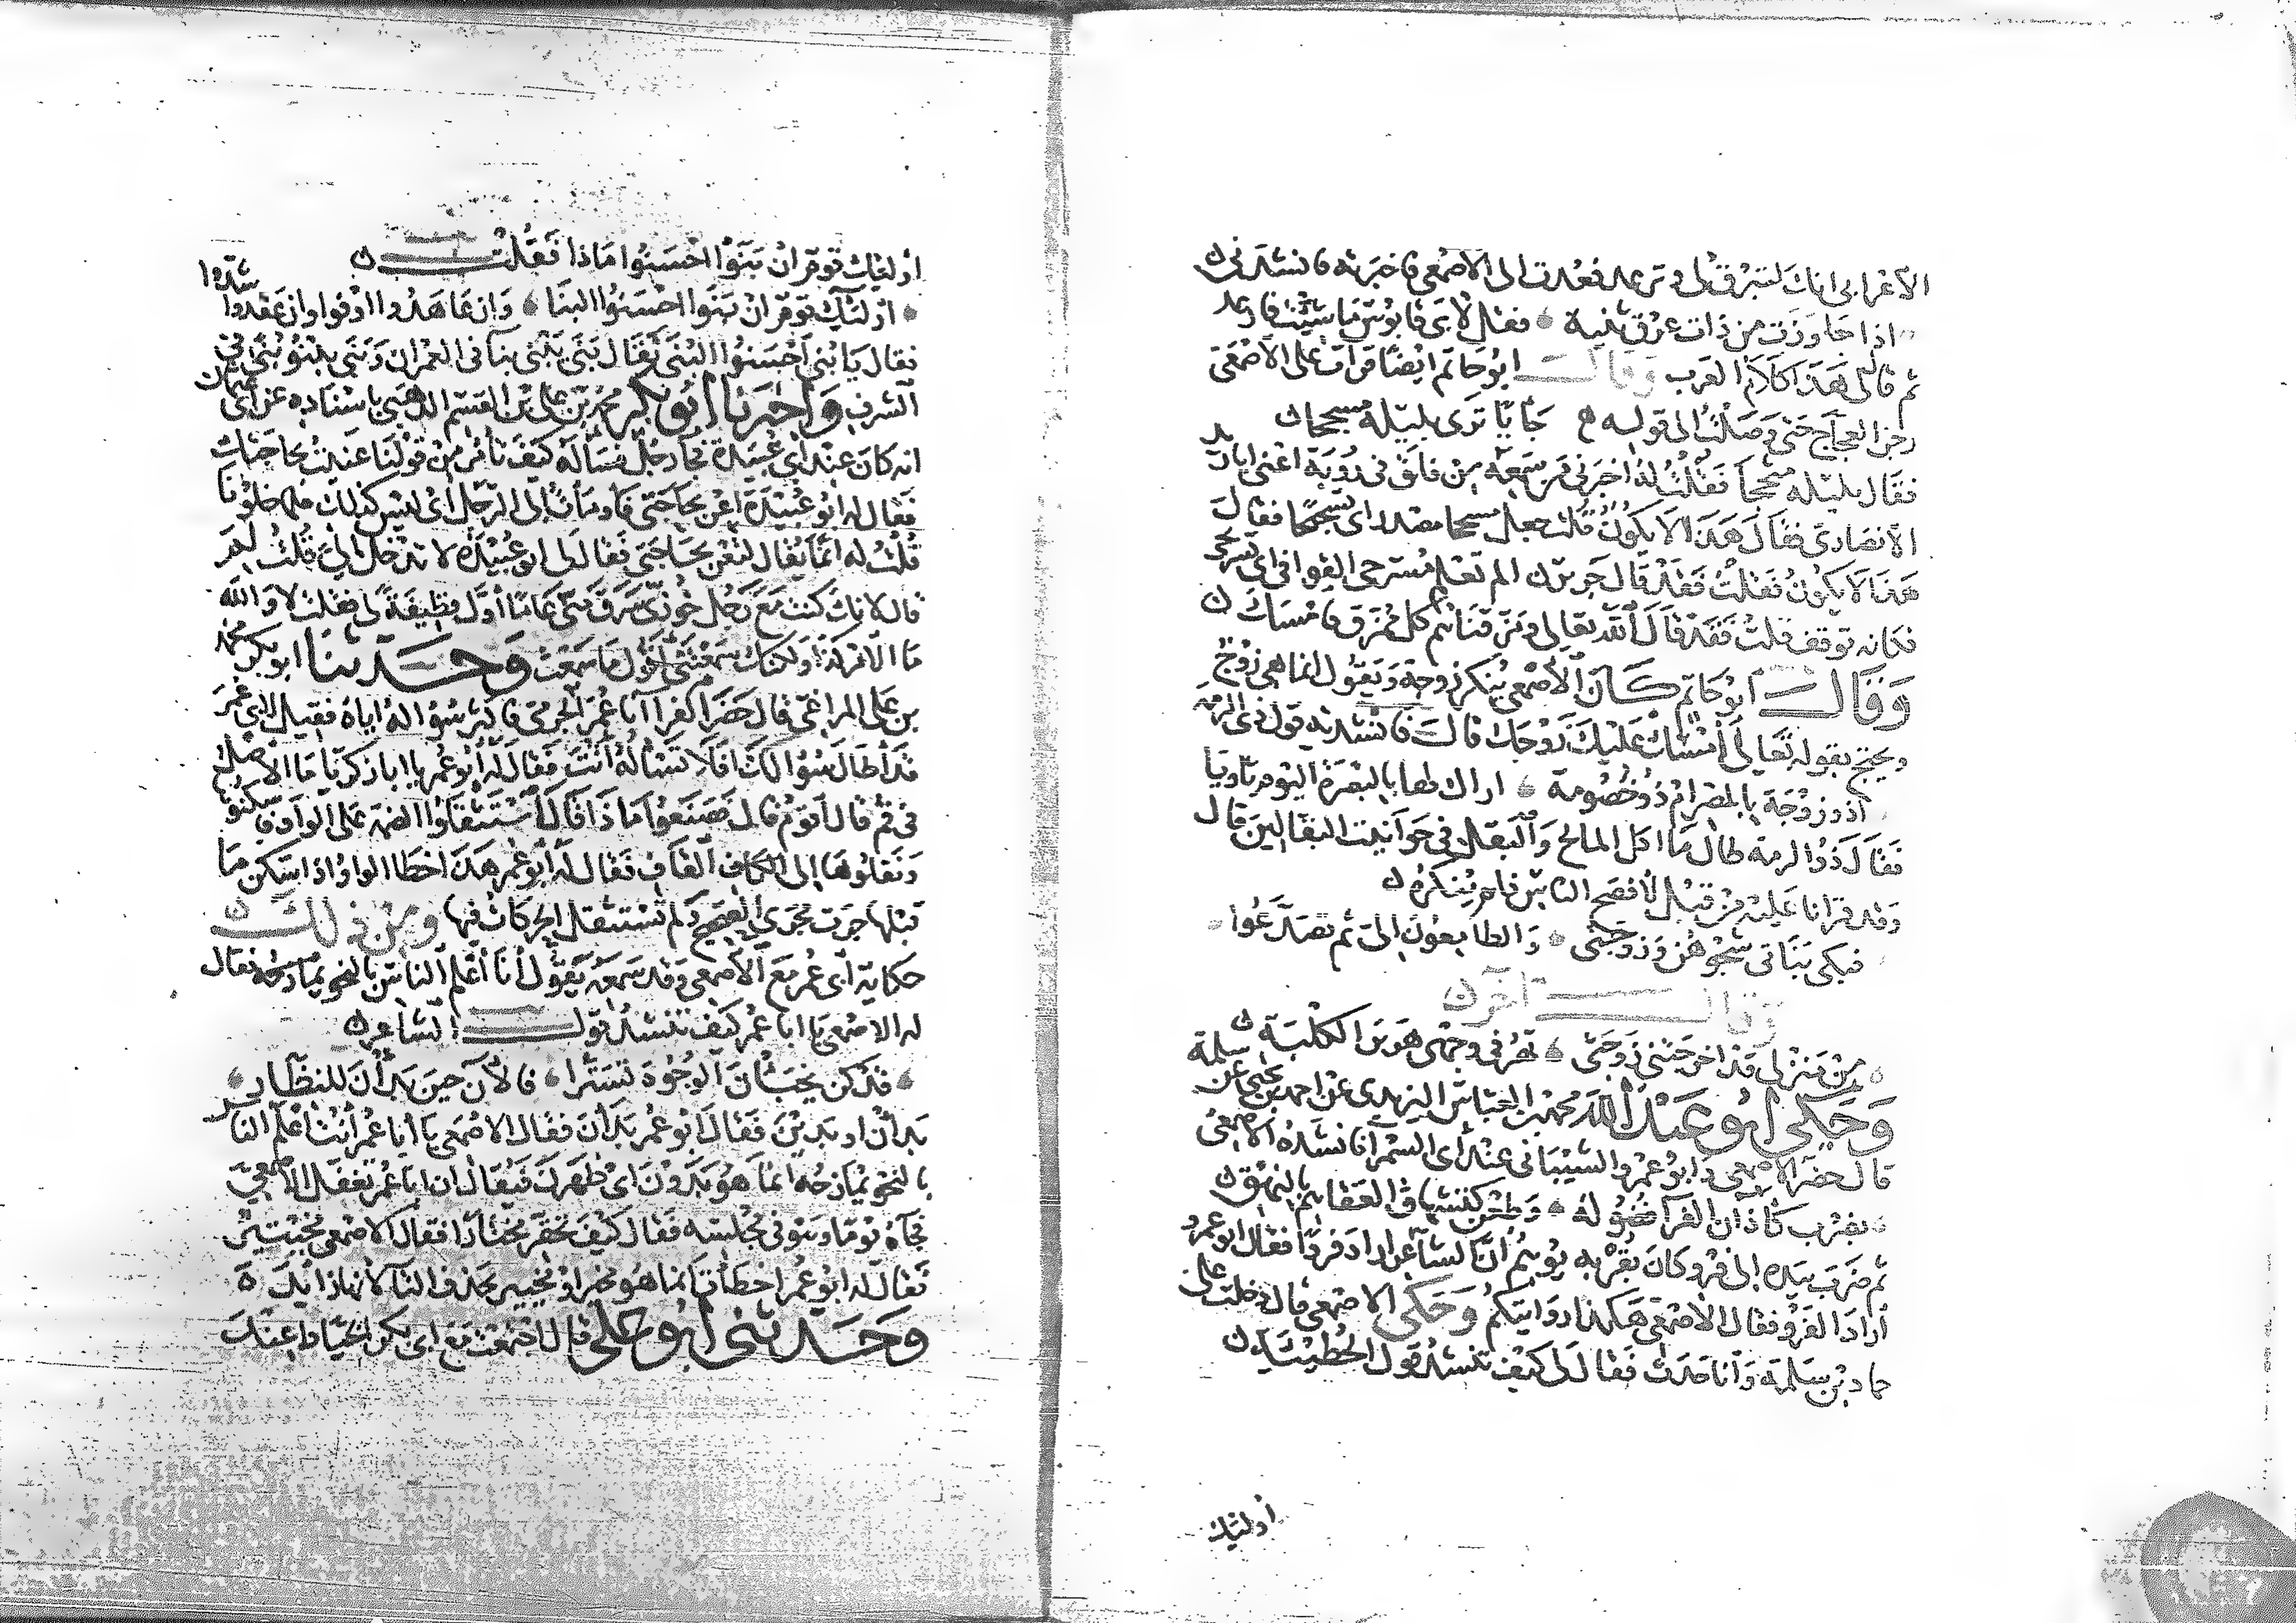 الأعرابي انك لتبرق لي وترعد فعدت الى الاصمعي فاخبرته فانشدني
اذا جاوزت من ذات عرق ثنية فقل لابي قابوس ما شئت فارعد
ثم قال لي هذا كلام العرب وقال ابو حاتم ايضا قرات على الاصمعي
رجز العجاج حتى وصلت الى قوله جابا ترى بليته مسحجا
فقال بليله مسحجا فقلت له اخبرني من سمعه من فلق في رؤبة اعني ابا زيد
الانصاري فقال هذا لا يكون قلت جعل مسحجا مصدرا اي تسحيجا فقال
هذا لا يكون فقلت فقد قال جرير الم تعلم مسرحي القوافي اي تسريحي
فكانه توقف قلت فقد قال الله تعالى ومزقناهم كل ممزق فامسك
وقال ابو حاتم كان الاصمعي ينكر زوجة ويقول انما هي زوج
ويحتج بقوله تعالى امسك عليك زوجك قال فانشدته قول ذي الرمة
اذو زوجة بالمصر ام ذو خصومة اراك لها بالبصرة اليوم ثاويا
فقال ذو الرمة طال ما اكل المالح والبقل في حوانيت البقالين قال
وقد قرانا عليه من قبل لافصح الناس فلم ينكره
فبكى بناتي شجوهن وزوجتي والطامعون الي ثم تصدعوا
وقال آخر
من منزلي قد اخرجتني زوجتي تهر في وجهي هرير الكلبة
وحكى ابو عبد الله محمد بن العباس اليزيدي عن احمد بن يحيى عن سلمة
قال حضر الاصمعي وابو عمرو الشيباني عند ابي السمراء فانشده الاصمعي
بضرب كاذان الفراء فضوله وطعن كتشهاق العفا هم بالنهق
ثم ضرب بيده الى فرو كان بقربه يوهم ان الشاعر اراد فروا فقال ابو عمرو
اراد الفرو فقال الاصمعي هكذا روايتكم وحكى الاصمعي قال دخلت على
حماد بن سلمة وانا حدث فقال لي كيف تنشد قول الحطيئة
اولئك
اولئك قوم ان بنوا احسنوا ماذا فقلت
اولئك قوم ان بنوا احسنوا البنا وان عاهدوا اوفوا وان عقدوا شدوا
فقال يا بني احسنوا البنى يقال بنى يبني بناء في العمران وبنى يبنو بنى في
الشرف واخبرنا ابو بكر محمد بن علي بن القسم الذهبي باسناده عن ابي عثمان
انه كان عند ابي عبيدة فجاء رجل فسأله كيف تأمر من قولنا عنيت بحاجتك
فقال له ابو عبيدة اعن بحاجتي فأومأت الى الرجل اي ليس كذلك فلما خلونا
قلت له انما يقال لتعن بحاجتي فقال لي ابو عبيدة لا تدخل الي قلت لم
قال لانك كنت مع رجل خوزي سرق مني عاما اول قطيفة لي فقلت لا والله
ما الامر كذا ولكنك سمعتني اقول ما سمعت وحدثنا ابو بكر محمد
بن علي المراغي قال حضر الفراء ابا عمر الجرمي فاكثر سؤاله اياه فقيل لابي عمر
قد اطال سؤالك افلا تسأله انت فقال له ابو عمر يا ابا زكريا ما الاصل
في قم قال اقوم قال فصنعوا ماذا قال استثقلوا الضمة على الواو فاسكنوها
ونقلوها الى الكاف القاف فقال له ابو عمر هذا خطأ الواو اذا سكن ما
قبلها جرت مجرى الصحيح ولم تستثقل الحركات فيها ومن ذلك
حكاية ابي عمر مع الاصمعي وقد سمعه يقول أنا أعلم الناس بالنحو يمازحه فقال
له الاصمعي يا ابا عمر كيف تنشد قول الشاعر
قد كن يخبأن الوجوه تسترا فالآن حين بدأن للنظار
بدأن او بدين فقال ابو عمر بدأن فقال الاصمعي يا ابا عمر أنت أعلم الناس
بالنحو يمازحه انما هو بدون اي ظهرن فيقال ان ابا عمر تغفل الاصمعي
فجاءه يوما وهو في مجلسه فقال كيف تحقر مختارا فقال الاصمعي مخيتير
فقال له ابو عمر اخطأت انما هو مخير او مخيير بحذف التاء لانها زايدة
وحدثني ابو علي قال اجتمعت مع ابي بكر الخياط عند